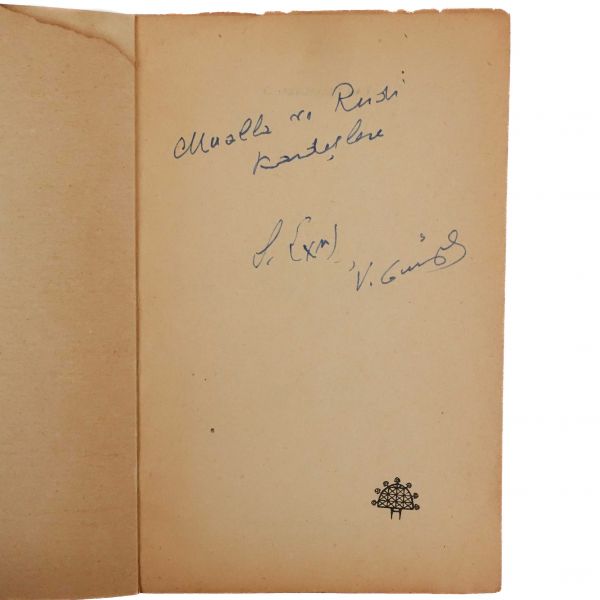 Mualla ve
Kardeşlere
S.
V. Günyol